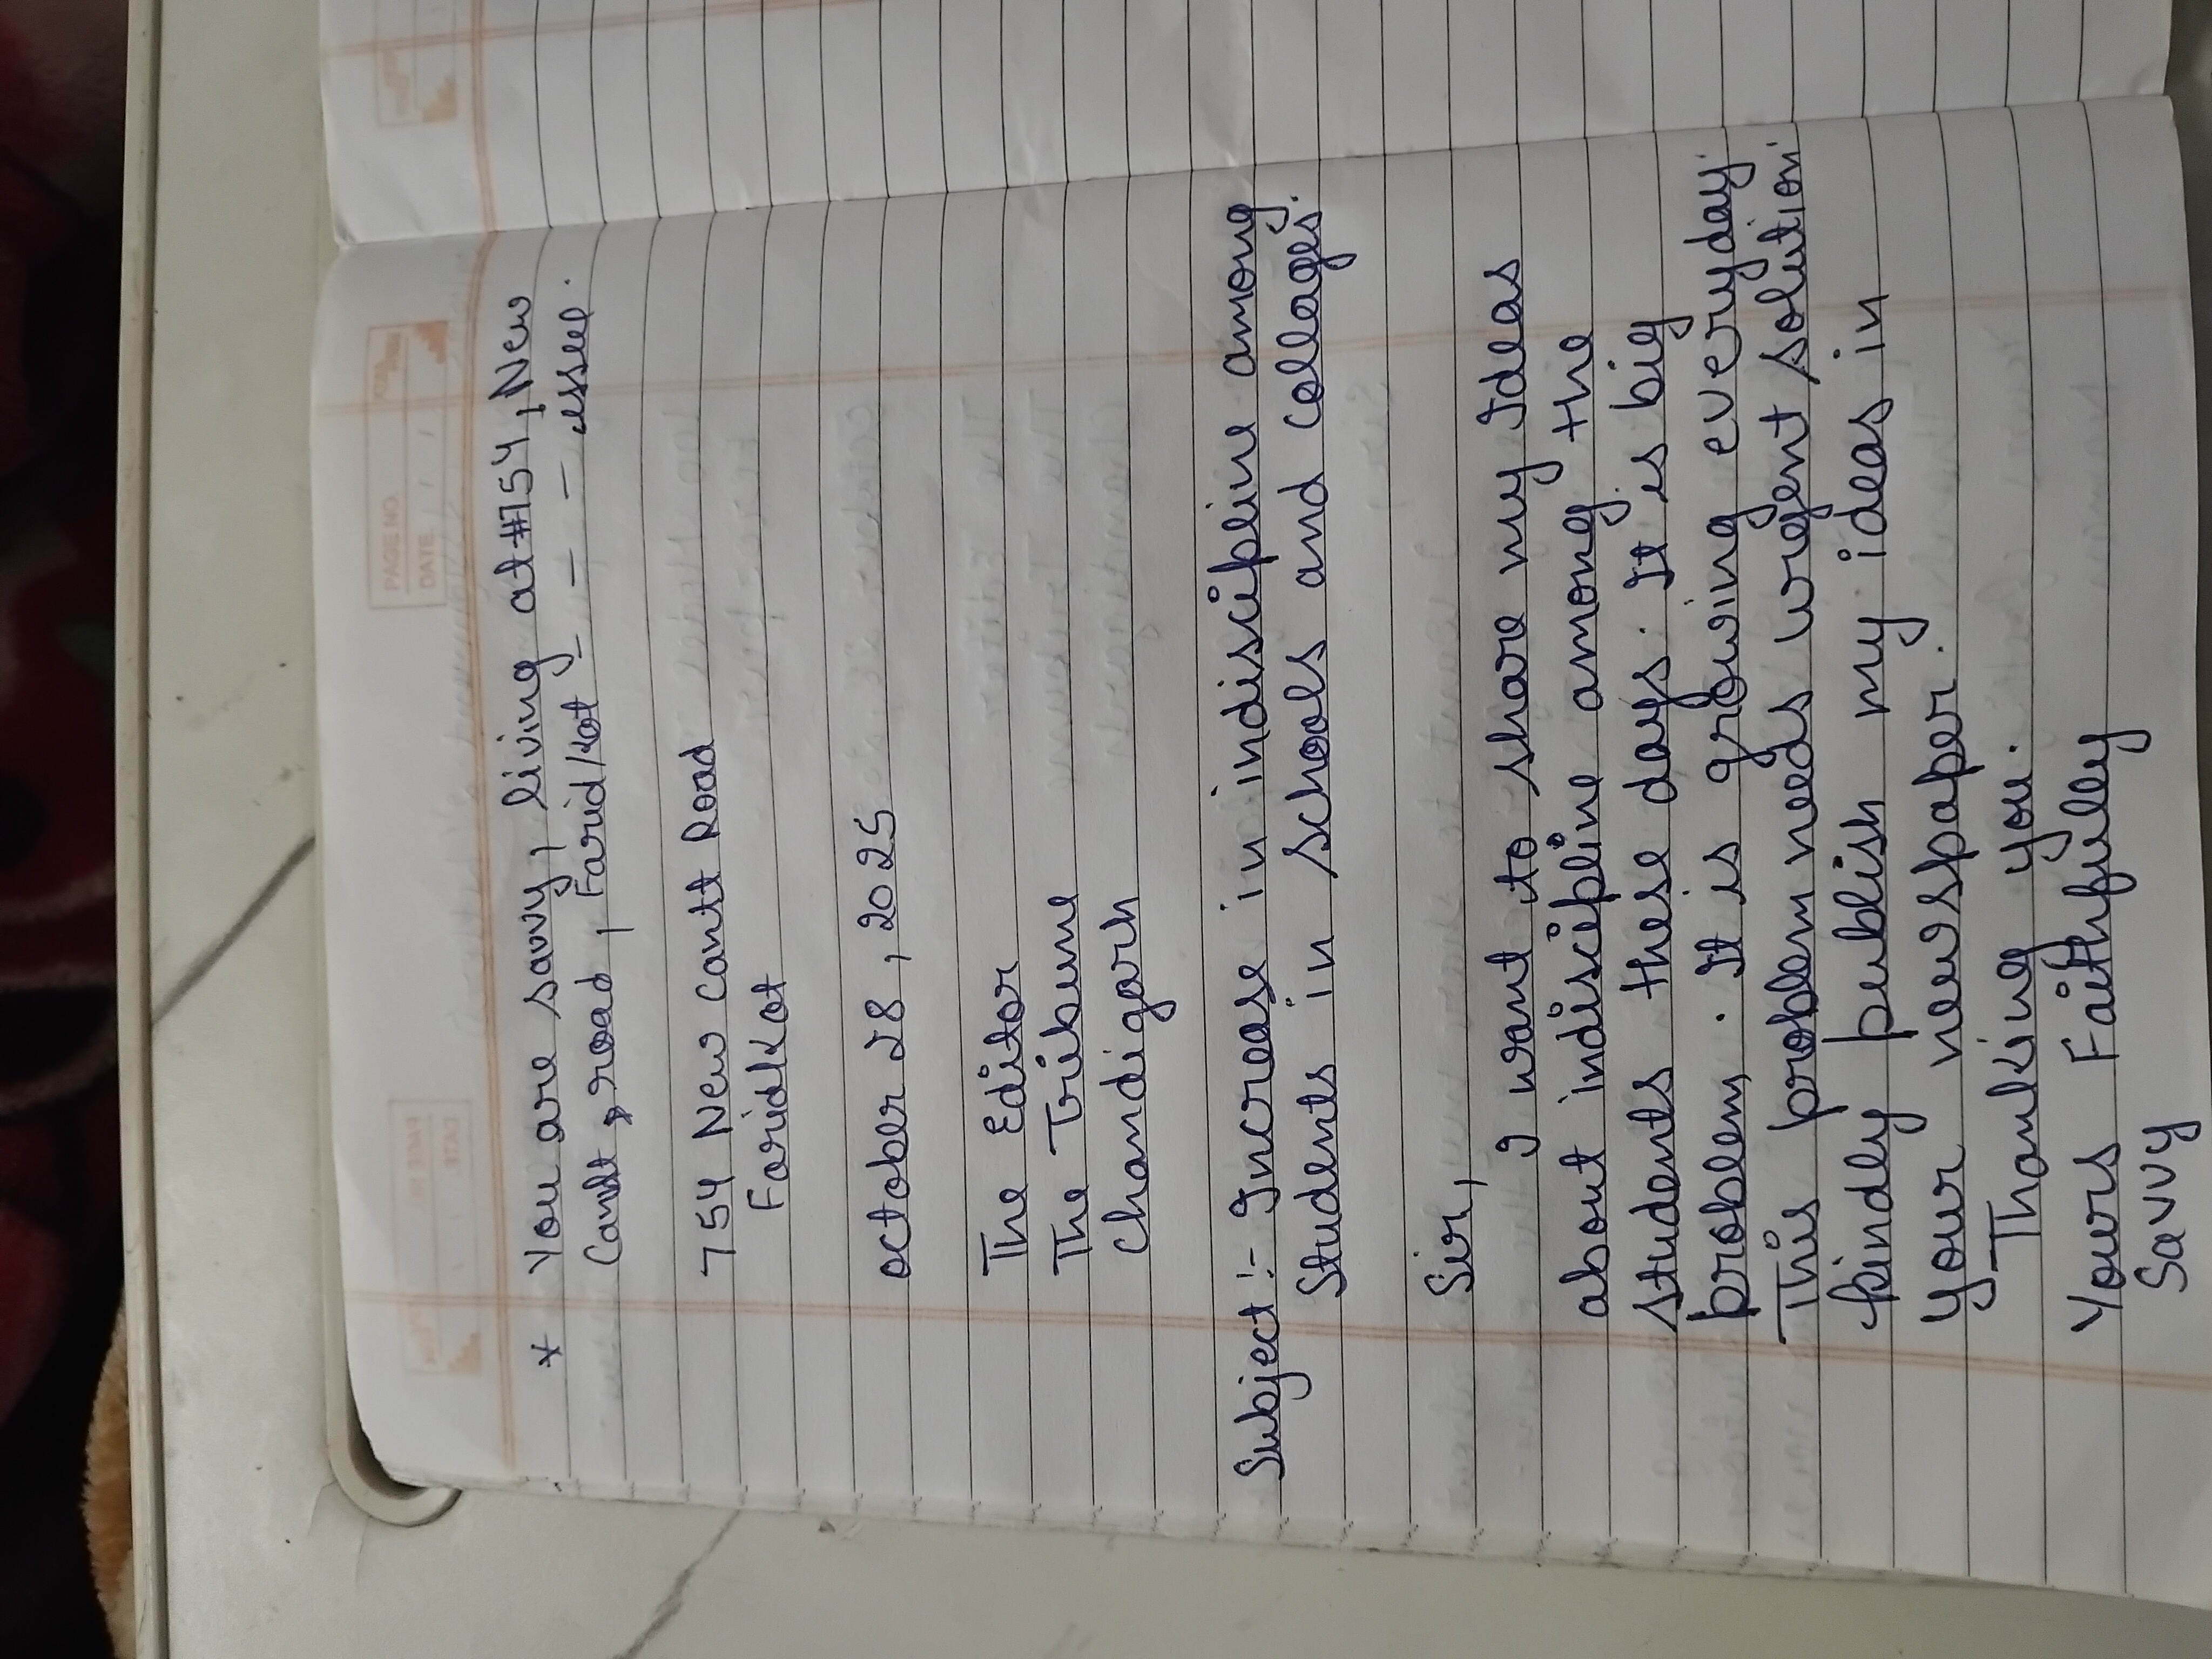 PAGE NO.
DATE / /
* You are savvy, living at #754, New
Cantt, road, Faridkot _ _ = = - issue.
754 New Cantt Road
Faridkot
October 28, 2025
The Editor
The Tribune
Chandigarh
Subject :- Increase in indiscipline among
Students in schools and collages.
Sir,
I want to share my Ideas
about indiscipline among the
students these days. It is big
problem. It is growing everyday.
This problem needs urgent solution.
kindly publish my ideas in
your newspaper.
Thanking you.
Yours Faithfully
Savvy